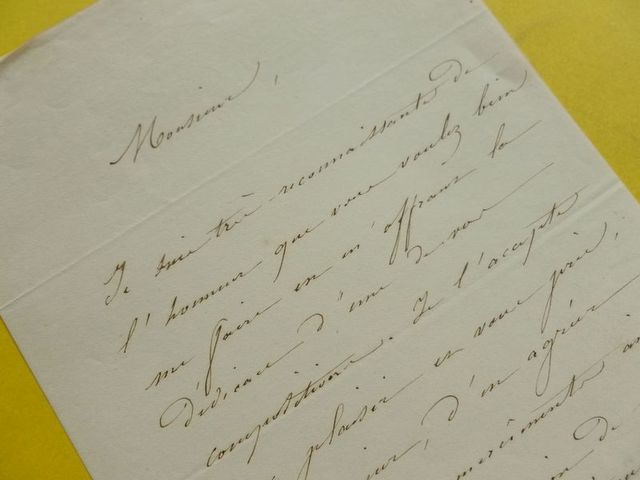 Monsieur,
Je suis très reconnaissante de
l'honneur que vous voulez bien
me faire en m'offrant la
dédicace d'une de vos
compositions. Je l'accepte
plaisir et vous prie,
d'en agréer